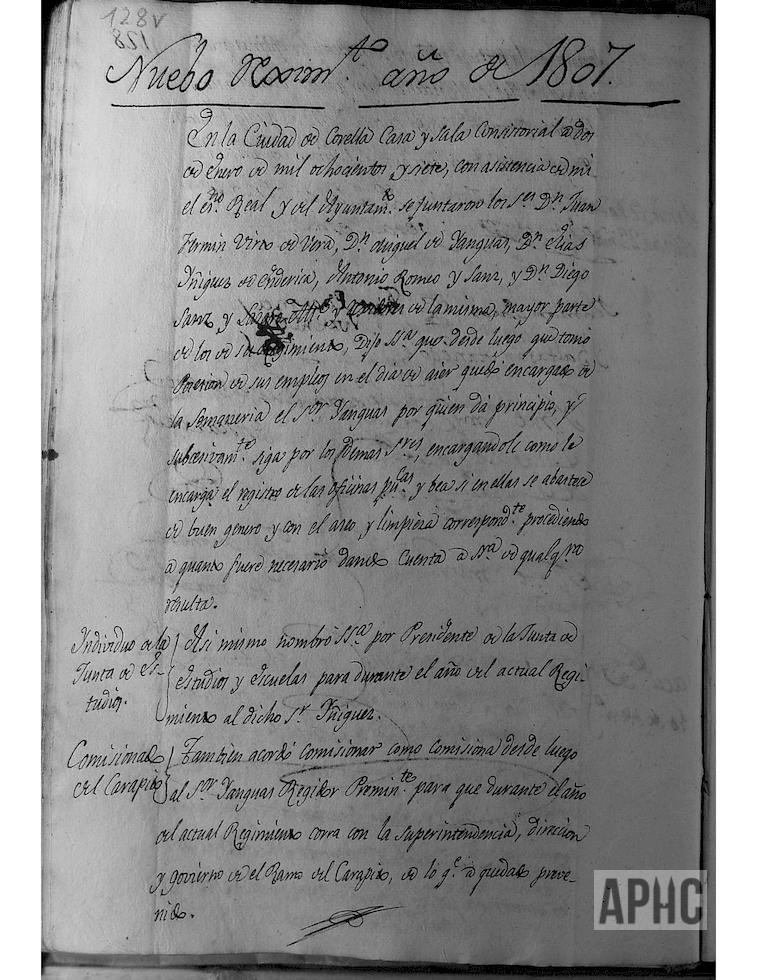 128v
128
Nuebo Reximto. año de 1807.
En la Ciudad de Corella Casa y Sala Consistorial a dos
de Enero de mil ochocientos y siete, con asistencia de mi
el esno. Real y del Ayuntamto. se juntaron los Ses. Dn. Juan
Fermin Virto de Vera, Dn. Miguel de Yanguas, Dn. Elias
Yñiguez de, Antonio Romeo y Sanz, y Dn. Diego
Sanz y Alle. y Regidores de la misma, mayor parte
de los de su Regimiento, Dijo Ssa. que desde luego que tomó
Posesion de sus empleos en el dia de aier quedó encargado de
la Semaneria el Sor. Yanguas por quien dá principio, y
subcesivamte. siga por los demas Sres., encargandole como le
encarga el registro de las oficinas pucas. y bea si en ellas se abastece
de buen genero y con el aseo y limpieza correspondte. procediendo
a quanto fuere necesario dando Cuenta a Sria. de qualqra.
resulta.
Individuo de la
Junta de Es-
tudios.
Asi mismo nombró SSa. por Presidente de la Junta de
Estudios y Escuelas para durante el año del actual Regi-
miento al dicho Sr. Yñiguez.
Comisionado
del Carapito
Tambien acordó comisionar como comisiona desde luego
al Sor. Yanguas Regidor Preminte. para que durante el año
del actual Regimiento corra con la superintendencia, direccion
y govierno de el Ramo del Carapito, de lo qe. a quedado preve-
nido.
APHC